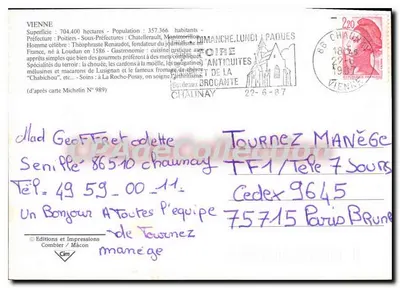 VIENNE
Superficie : 704.400 hectares - Population : 357.366 habitants -
Préfecture : Poitiers - Sous-Préfectures : Chatellerault,
Homme célèbre : Théophraste Renaudot, fondateur du
France, né à Loudun en 1586 - Gastronomie : cuisine
après simple que bien des gourmets préfèrent à des mets
Spécialités du terroir : la chouée, les cardons à la moelle,
et macarons de Lusignan et le fameux fromage
"Chabichou", etc. - Soins : La Roche-Posay, ou soigne
(d'après carte Michelin N° 989)
DIMANCHE.LUNDI PAQUES
FOIRE
D'ANTIQUITES
ET DE LA
BROCANTE
CHAUNAY
22-6-87
86 CHAUNAY
18 H
22-6
1987
VIENNE
2,20
Mad Geoffret odette
Senille 86510 chaunay
Tél. 49_59_00_11.
un Bonjour A Toutes l'equipe
de Tournez
manège
TOURNEZ MANÈGE
TF1/Tele 7 Jours
Cedex 9645
75715 Paris Brune
© Editions et Impressions
Combier / Mâcon
Cim